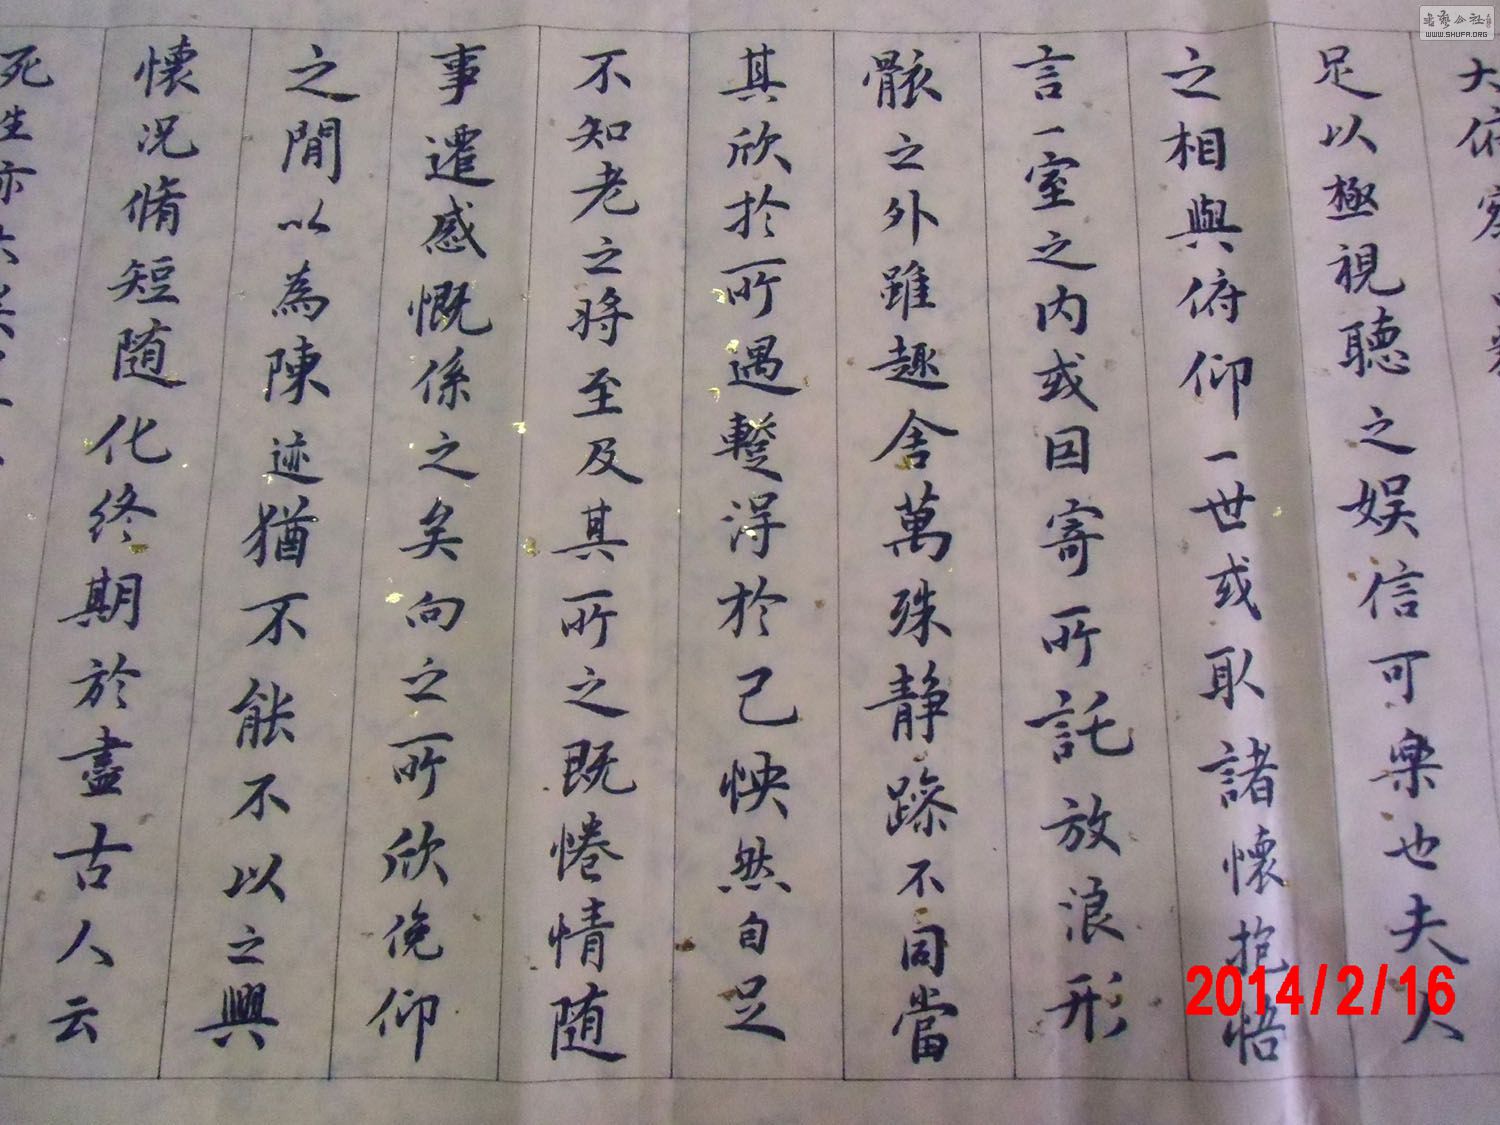 大俯察品類
足以極視聽之娱信可樂也夫人
之相與俯仰一世或取諸懷抱悟
言一室之内或因寄所託放浪形
骸之外雖趣舍萬殊静躁不同當
其欣於所遇蹔得於己怏然自足
不知老之将至及其所之既惓情随
事遷感慨係之矣向之所欣俛仰
之閒以為陳迹猶不能不以之興
懷况脩短随化終期於盡古人云
死生亦大矣
2014/2/16
書藝公社
WWW.SHUFA.ORG